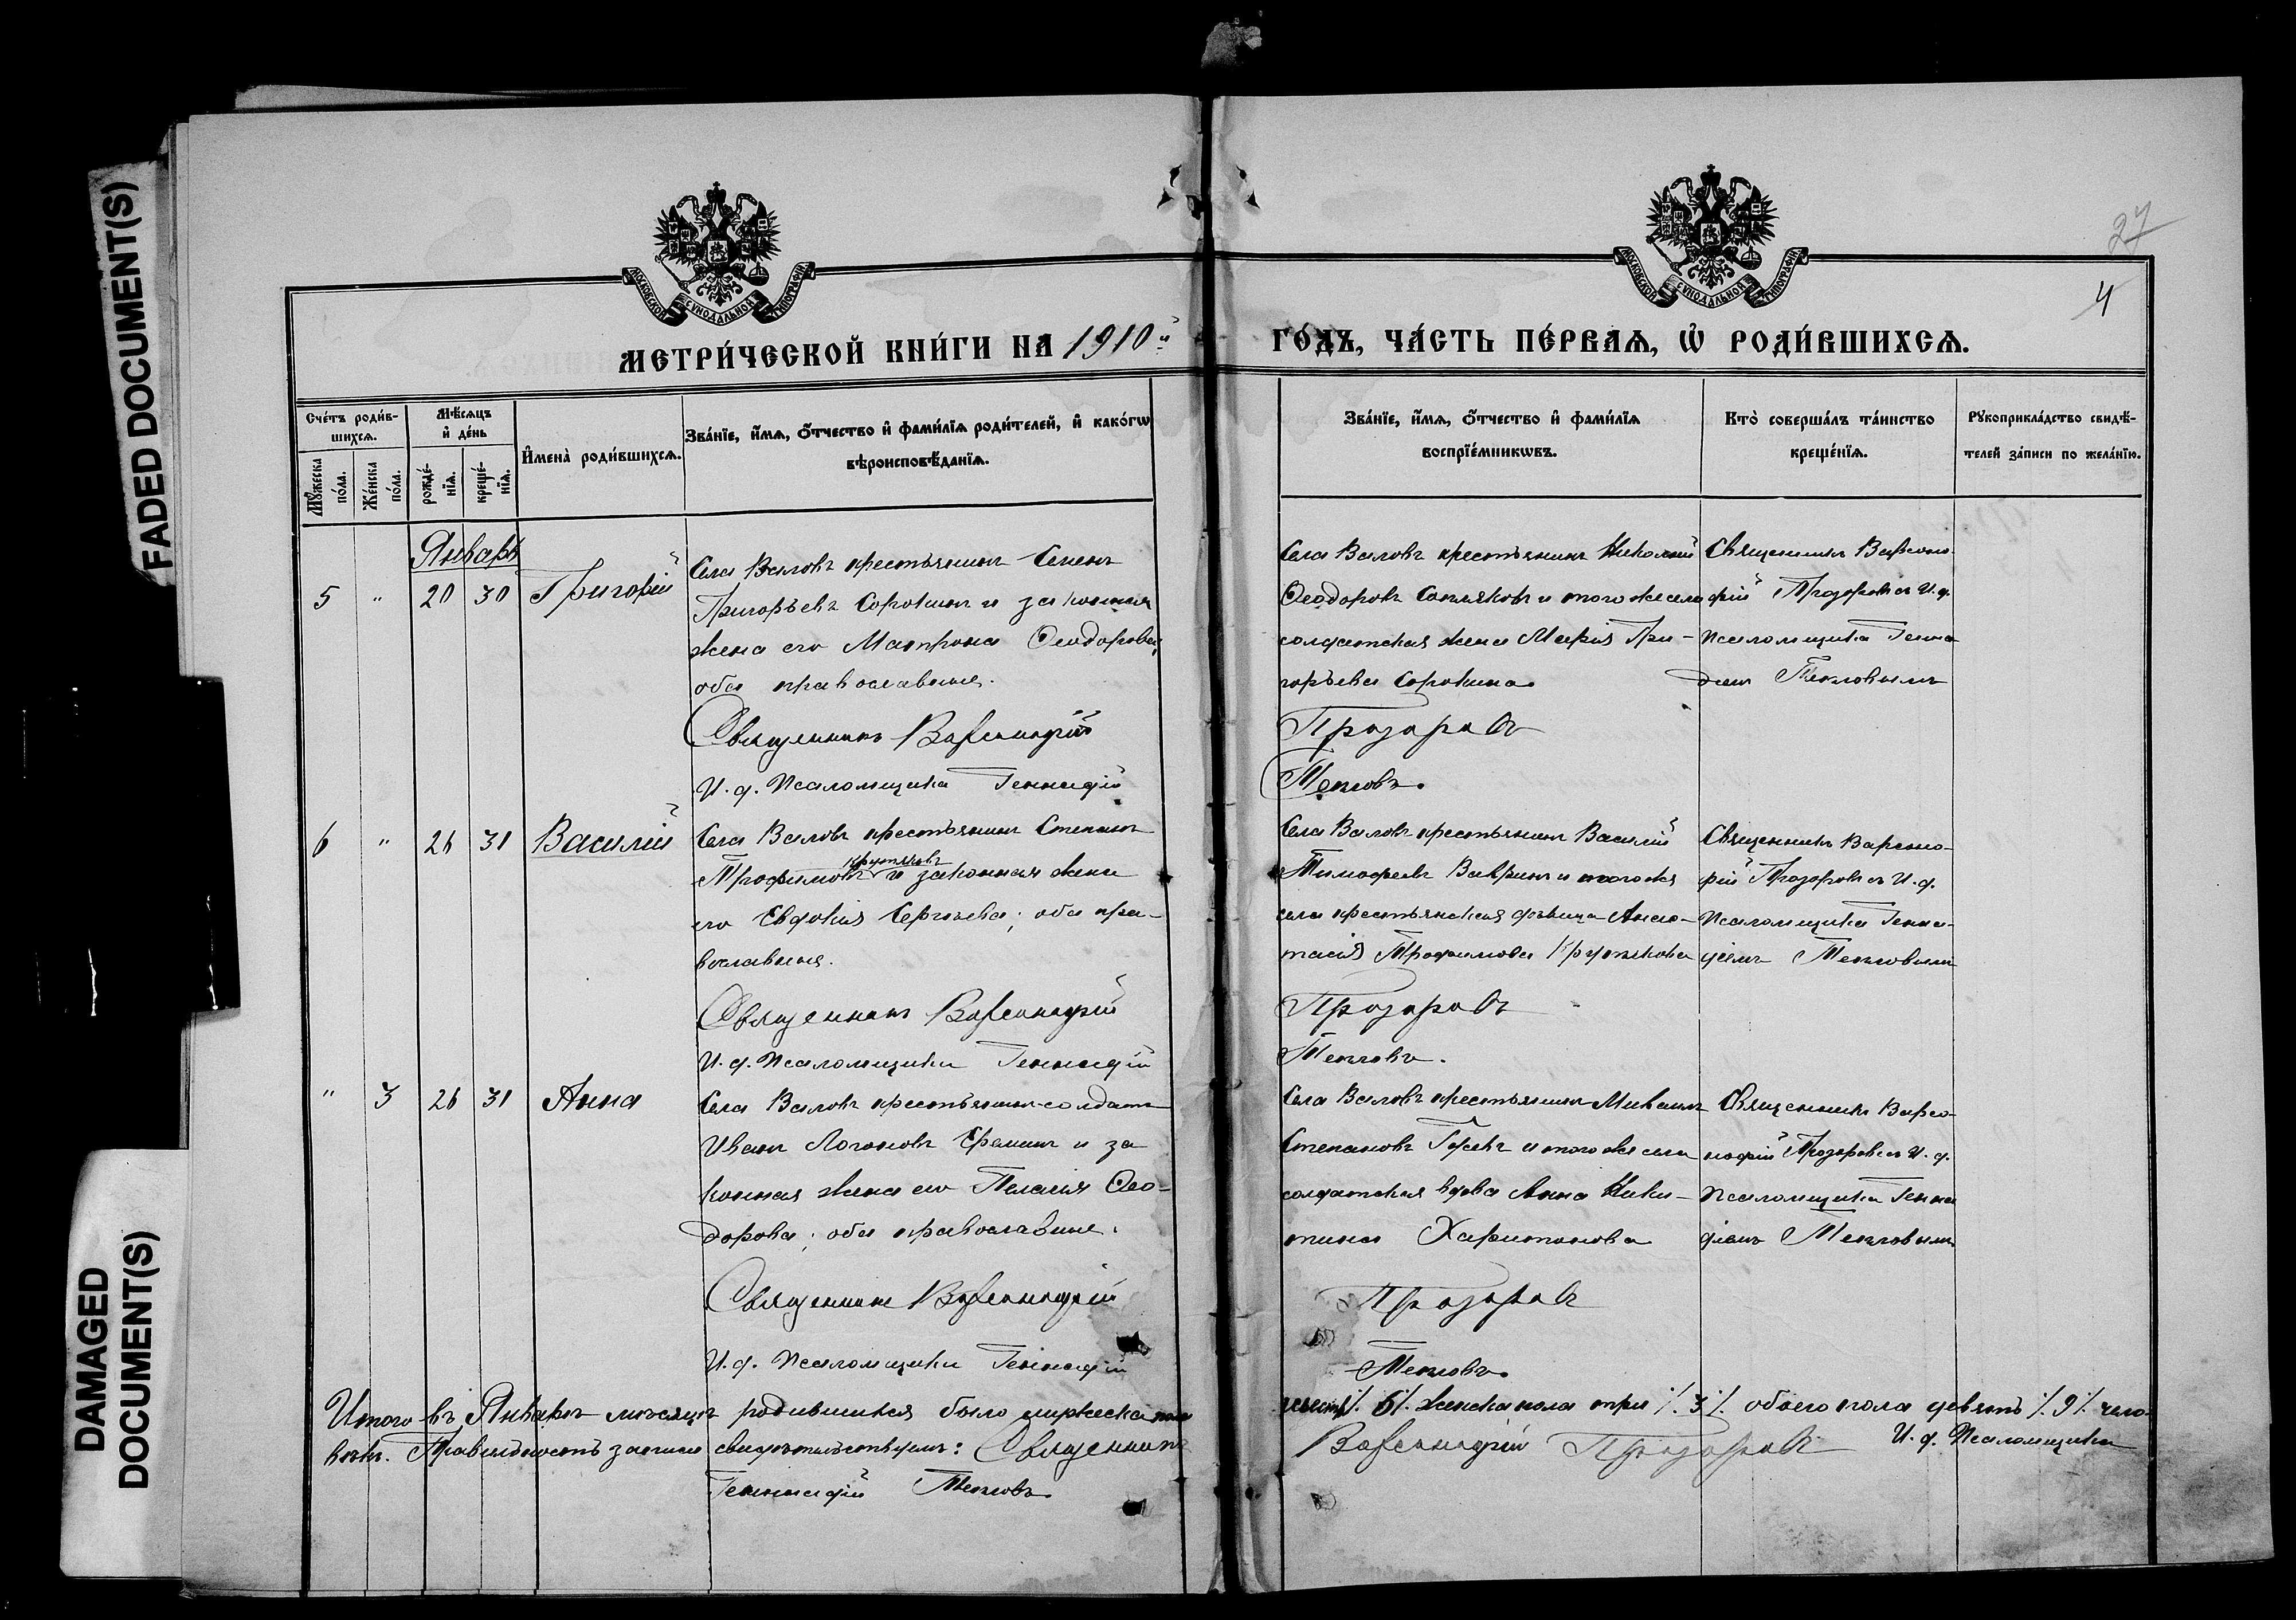 FADED DOCUMENT(S)
DAMAGED
DOCUMENT(S)
27
4
МОСКОВСКОЙ СѴНОДАЛЬНОЙ ТИПОГРАФІИ
МОСКОВСКОЙ СѴНОДАЛЬНОЙ ТИПОГРАФІИ
МЕТРИ́ЧЕСКОЙ КНИ́ГИ НА 1910й
ГО́ДЪ, ЧА́СТЬ ПЕ́РВАѦ, Ѡ҆ РОДИ́ВШИХСѦ.
Сче́тъ роди́в-
шихсѧ.
Мꙋ́жеска по́ла.
Же́нска по́ла.
Мѣ́сѧцъ
и҆ де́нь
рожде́-
нїѧ.
креще́-
нїѧ.
И҆мена̀ роди́вшихсѧ.
Зва́нїе, и҆́мѧ, ѻ҆́тчество и҆ фами́лїѧ роди́телей, и҆ како́гѡ
вѣроисповѣ́данїѧ.
Зва́нїе, и҆́мѧ, ѻ҆́тчество и҆ фами́лїѧ
воспрїе́мникѡвъ.
Кто̀ соверша́лъ та́инство
креще́нїѧ.
Рꙋкоприкла́дство свидѣ́-
телей за́писи по жела́нїю.
Январь
5 " 20 30 Григорій
Села Валовъ крестьянинъ Семенъ
Григорьевъ Сорокинъ и законная
жена его Матрона Ѳеодорова,
оба православные.
Священникъ Варсонофій
И. д. Псаломщика Геннадій
Села Валовъ крестьянинъ Николай
Ѳеодоровъ и того же села
солдатская жена Марія Гри-
горьева Сорокина
Прозоровъ
Тепловъ.
Священникъ Варсоно-
фій Прозоровъ съ И. д.
Псаломщика Генна
діем Тепловымъ
6 " 26 31 Василій
Села Валовъ крестьянинъ Степанъ
Крутяковъ
Трофимовъ и законная жена
его Евдокія Сергіева; оба пра-
вославные.
Священникъ Варсонофій
И. д. Псаломщика Геннадій
Села Валовъ крестьянинъ Василій
Тимофеевъ Вавринъ и того же
села крестьянская дѣвица Анас-
тасія Трофимова Крутякова
Прозоровъ
Тепловъ.
Священникъ Варсоно-
фій Прозоровъ съ И. д.
Псаломщика Генна-
діемъ Тепловымъ
" 3 26 31 Анна
Села Валовъ крестьянинъ-солдатъ
Иванъ Логоновъ Ереминъ и за
конная жена его Пелагія Ѳео-
дорова; оба православные.
Священникъ Варсонофій
И. д. Псаломщика Геннадій
Села Валовъ крестьянинъ Михаилъ
Степановъ Гусевъ и того же села
солдатская вдова Анна Ники-
тина Харитонова
Прозоровъ
Тепловъ
Священникъ Варсо-
нофій Прозоровъ съ И. д.
Псаломщика Генна
діемъ Тепловымъ
Итого въ Январѣ мѣсяцѣ родившихся было мужеска пола
шесть ٪ 6 ٪ женска пола три ٪ 3 ٪ обоего пола девять ٪ 9 ٪ чело-
вѣкъ. Правильность записи свидѣтельствуемъ: Священникъ
Варсонофій Прозоровъ И. д. Псаломщика
Геннадій Тепловъ